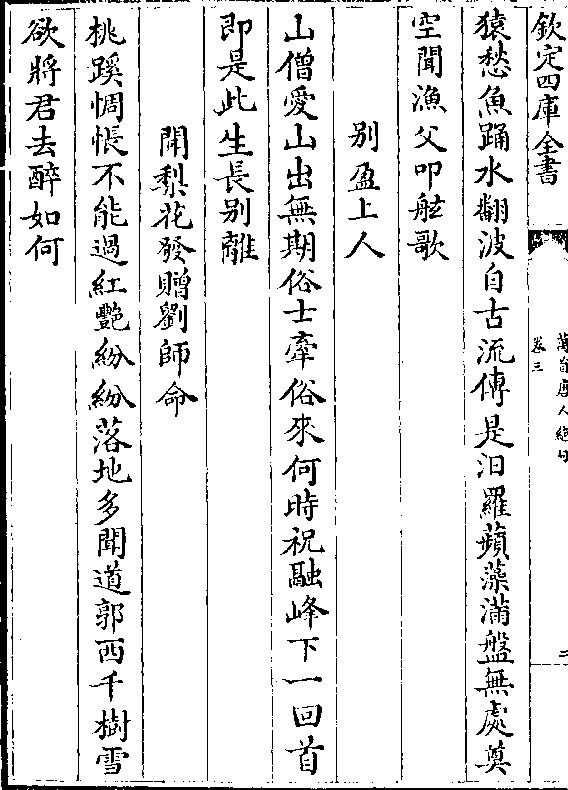 欽定四庫全書
萬首唐人絶句
卷三
二
猿愁魚踊水翻波自古流傳是汨羅蘋藻滿盤無處奠
空聞漁父叩舷歌
别盈上人
山僧愛山出無期俗士牽俗來何時祝融峰下一回首
即是此生長别離
聞梨花發贈劉師命
桃蹊惆悵不能過紅艷紛紛落地多聞道郭西千樹雪
欲將君去醉如何